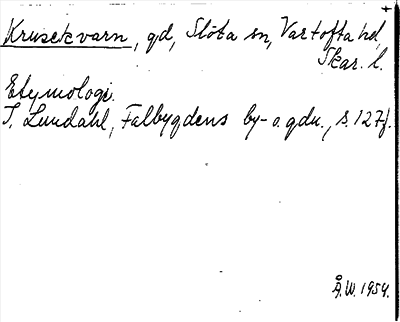 Krusekvarn, gd, Slöta sn, Vartofta hd,
Skar. l.
Etymologi.
I. Lundahl, Falbygdens by- o. gdn., s. 127f.
Å.W. 1954.